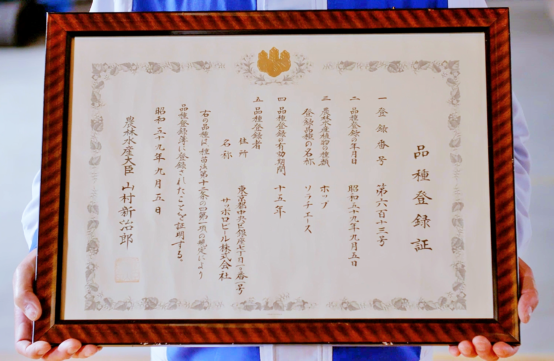 品種登録証
一 登録番号 第六百十三号
二 品種登録の年月日 昭和五十九年九月五日
三 農林水産植物の種類 ホップ
登録品種の名称 ソラチエース
四 品種登録の有効期間 十五年
五 品種登録者
住所 東京都中央区銀座七丁目
名称 サッポロビール株式会社
右の品種は種苗法第十二条の四第一項の規定により
品種登録簿に登録されたことを証明する。
昭和五十九年九月五日
農林水産大臣 山村新治郎